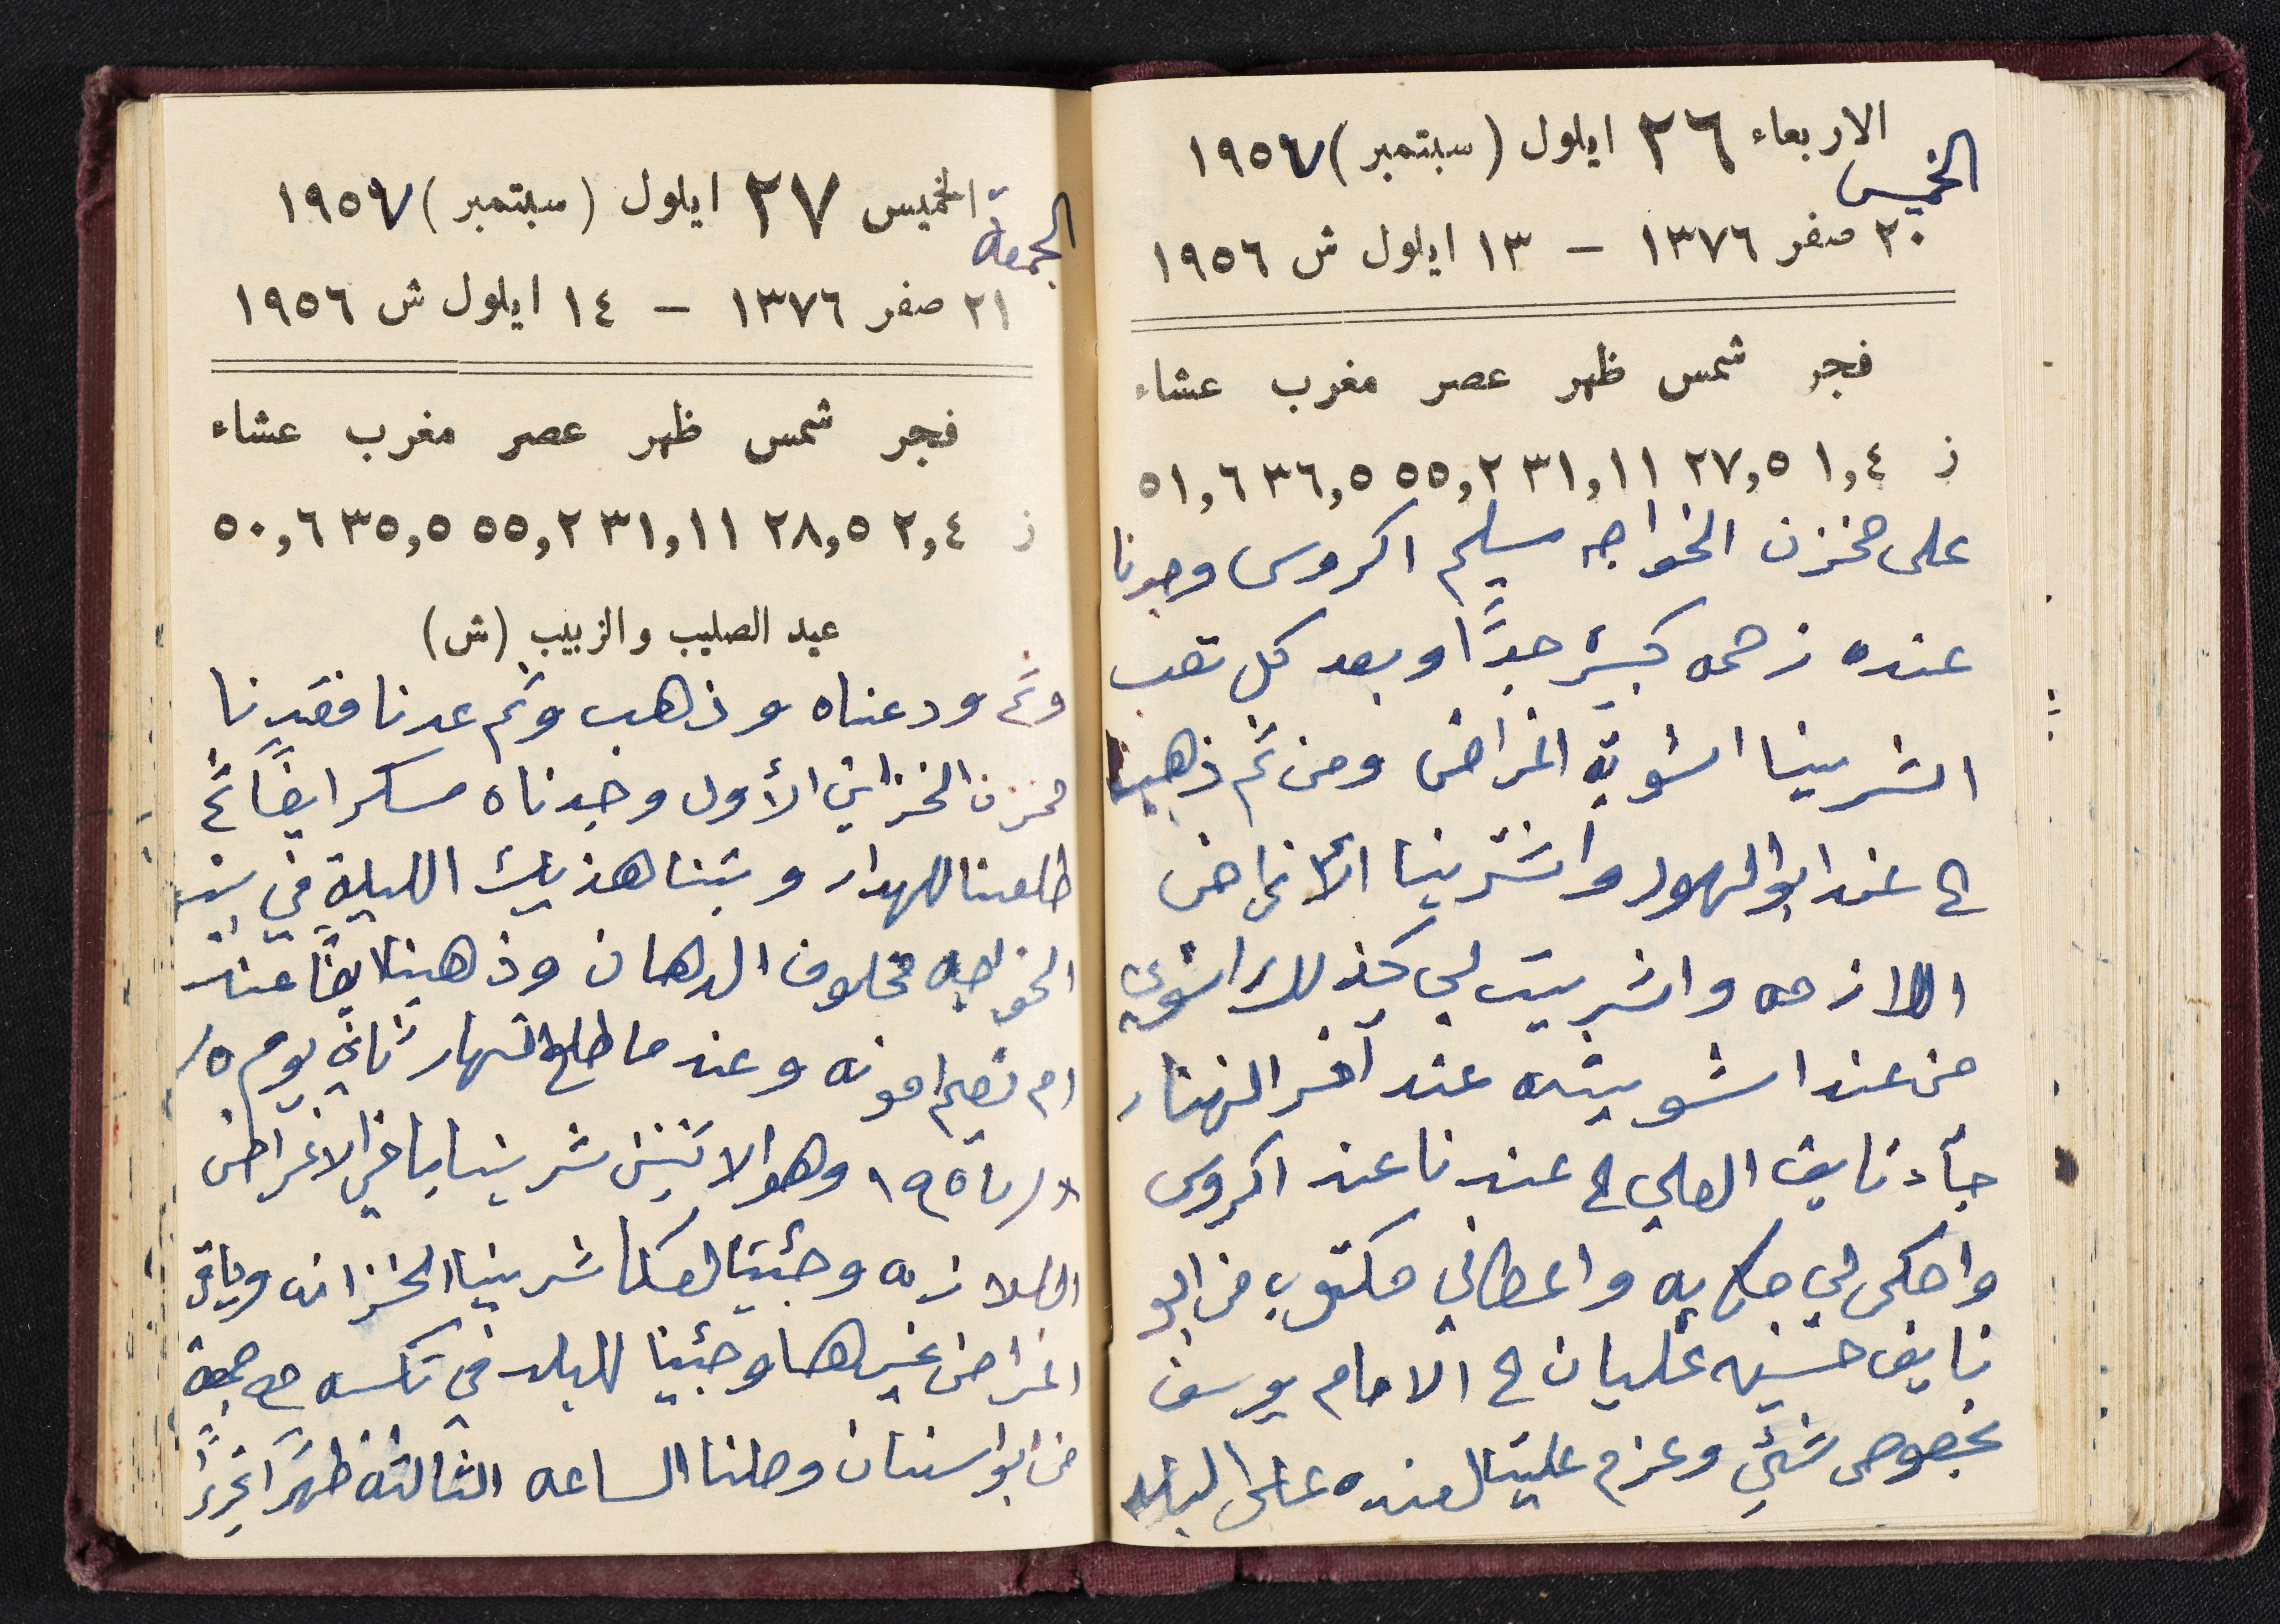 الاربعاء ٢٦ ايلول (سبتمبر) ١٩٥٧
الخميس
٢٠ صفر ١٣٧٦ – ١٣ ايلول ش ١٩٥٦
فجر شمس ظهر عصر مغرب عشاء
ز ١,٤ ٢٧,٥ ٣١,١١ ٥٥,٢ ٣٦,٥ ٥١,٦
على مخزن الخواجه سليم اكروس وجدنا
عنده زحمه كبيره جدًا وبعد كل تعب
اشرينا اشوية اغراض ومن ثم ذهبنا
الى عند ابو الهود واشترينا الأغراض
اللازمه واشريت لي كذلك اشوية
من عند اشويته عند آخر النهار
جاء نايف العلي الى عندنا عند اكروس
واحكى لي حكايه واعطاني مكتوب من ابو
نايف حسنيه عليان الى الامام يوسف
بخصوص شيئ وعزم علينا لعنده على البلد
الخميس ٢٧ ايلول (سبتمبر) ١٩٥٧
الجمعة
٢١ صفر ١٣٧٦ – ١٤ ايلول ش ١٩٥٦
فجر شمس ظهر عصر مغرب عشاء
ز ٢,٤ ٢٨,٥ ٣١,١١ ٥٥,٢ ٣٥,٥ ٥٠,٦
عيد الصليب والزبيب (ش)
وثم ودعناه وذهب وثم عدنا فقدنا
مخزن الخزاين الأول وجدناه مسكر ايضًا ثم
طلعنا للهدار وبتنا هذيك الليلة في بيت
الخواجه مخلوف الدهان وذهبنا ايضًا عند
ام نعيم امونه وعند ما طلع النهار ثاني يوم
وهو الاثنين شرينا باقي الاغراض
اللازمه وجئينا لعكا شرينا الخزانه وباقي
اغراض غيرها وجئينا للبلد في تكسه مع جمعة
من ابو اسنان وصلنا الساعه الثالثه ظهرًا